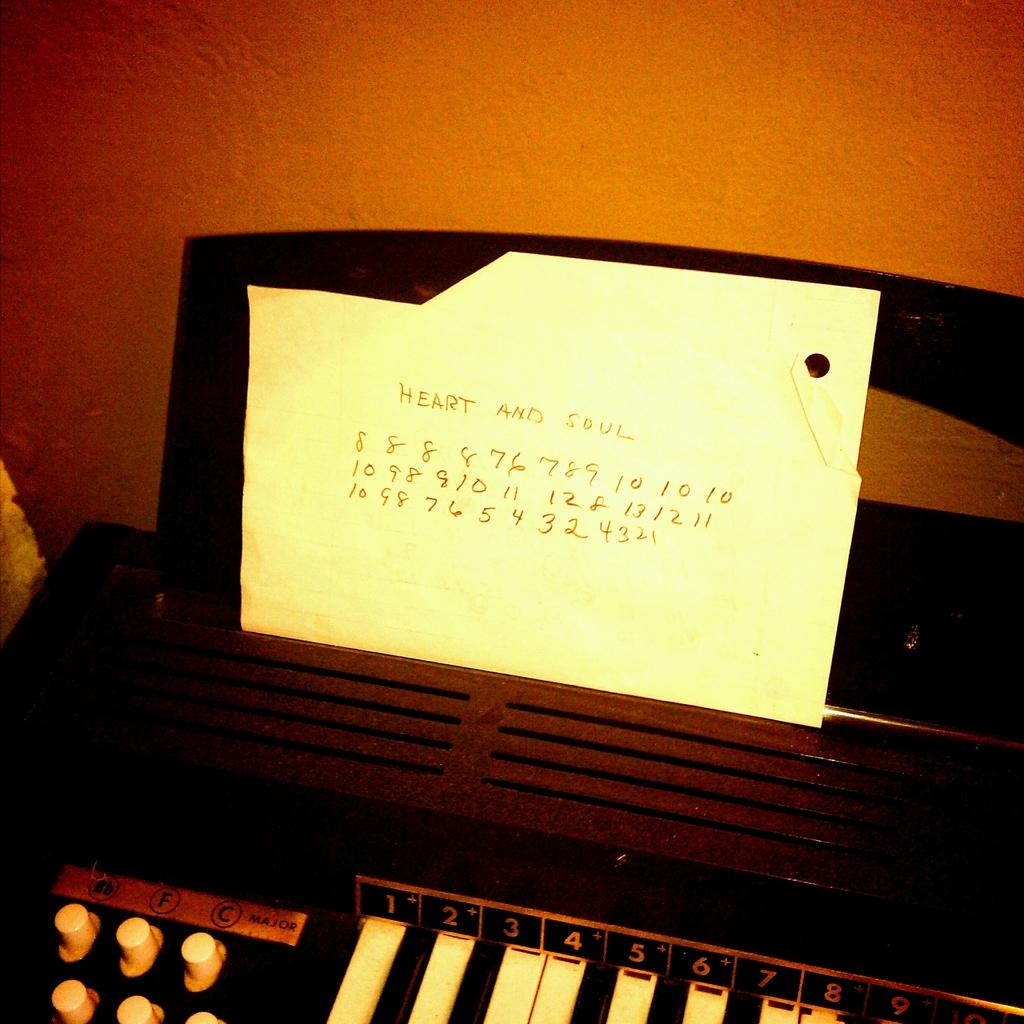 HEART AND SOUL
8 8 8 8 7 6 7 8 9 10 10 10
10 9 8 9 10 11 12 8 13 12 11
10 9 8 7 6 5 4 3 2 4 3 2 1
Bb F C MAJOR
1+ 2+ 3 4+ 5+ 6+ 7 8+ 9+ 10